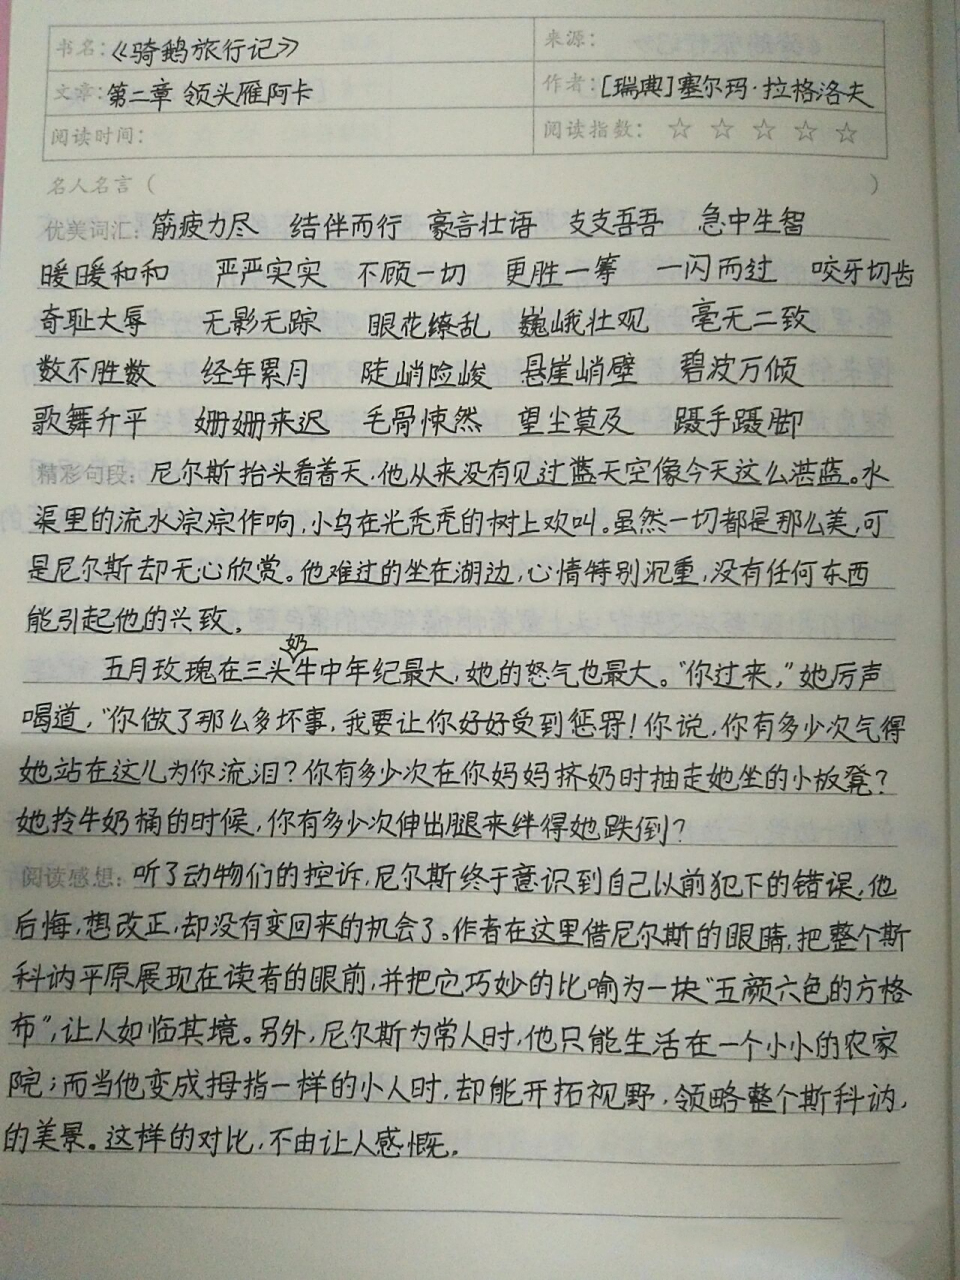 书名：《骑鹅旅行记》 来源：
文章：第二章 领头雁阿卡 作者：[瑞典]塞尔玛·拉格洛夫
阅读时间： 阅读指数：☆ ☆ ☆ ☆ ☆
名人名言（ ）
优美词汇：筋疲力尽 结伴而行 豪言壮语 支支吾吾 急中生智
暖暖和和 严严实实 不顾一切 更胜一筹 一闪而过 咬牙切齿
奇耻大辱 无影无踪 眼花缭乱 巍峨壮观 毫无二致
数不胜数 经年累月 陡峭险峻 悬崖峭壁 碧波万倾
歌舞升平 姗姗来迟 毛骨悚然 望尘莫及 蹑手蹑脚
精彩句段：尼尔斯抬头看着天，他从来没有见过蓝天空像今天这么湛蓝。水
渠里的流水淙淙作响，小鸟在光秃秃的树上欢叫。虽然一切都是那么美，可
是尼尔斯却无心欣赏。他难过的坐在湖边，心情特别沉重，没有任何东西
能引起他的兴致。
五月玫瑰在三头奶牛中年纪最大，她的怒气也最大。“你过来，”她厉声
喝道，“你做了那么多坏事，我要让你好好受到惩罚！你说，你有多少次气得
她站在这儿为你流泪？你有多少次在你妈妈挤奶时抽走她坐的小板凳？
她拎牛奶桶的时候，你有多少次伸出腿来绊得她跌倒？
阅读感想：听了动物们的控诉，尼尔斯终于意识到自己以前犯下的错误，他
后悔，想改正，却没有变回来的机会了。作者在这里借尼尔斯的眼睛，把整个斯
科讷平原展现在读者的眼前，并把它巧妙的比喻为一块“五颜六色的方格
布”，让人如临其境。另外，尼尔斯为常人时，他只能生活在一个小小的农家
院；而当他变成拇指一样的小人时，却能开拓视野，领略整个斯科讷，
的美景。这样的对比，不由让人感慨。